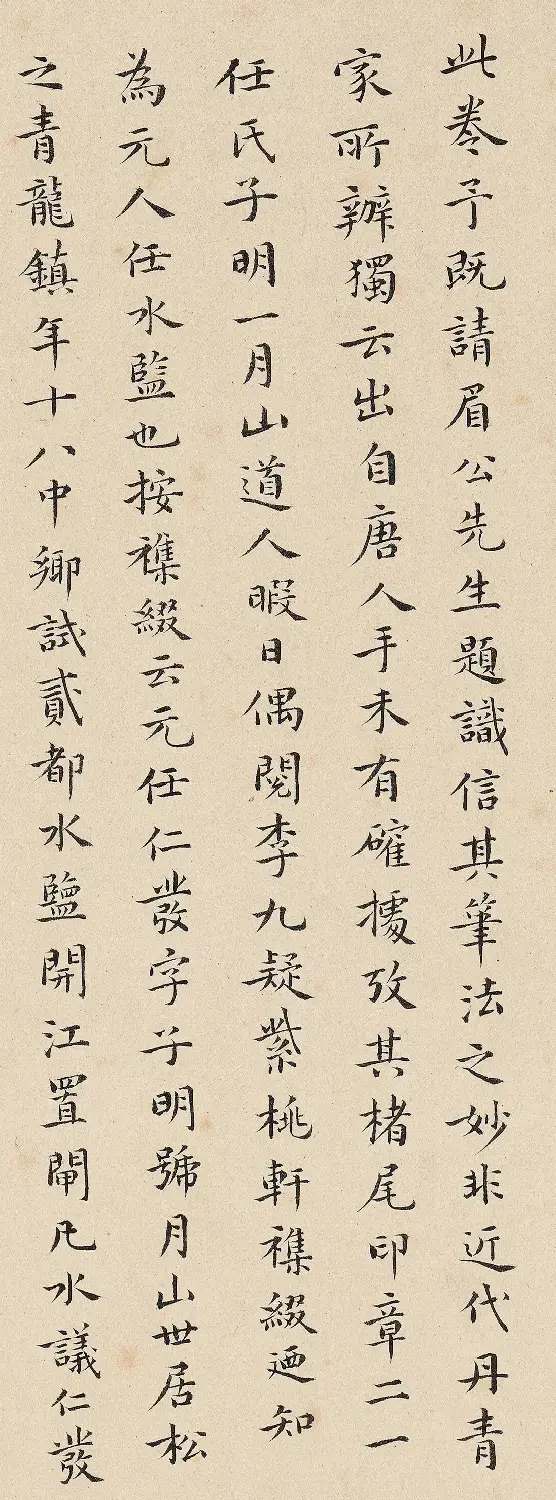 此卷予既請眉公先生題識信其筆法之妙非近代丹青
家所辦獨云出自唐人手未有確據攷其楮尾印章二一
任氏子明一月山道人暇日偶閱李九疑紫桃軒襍綴迺知
為元人任水監也按襍綴云元任仁發字子明號月山世居松
之青龍鎮年十八中鄉試貳都水鹽開江置閘凡水議仁發